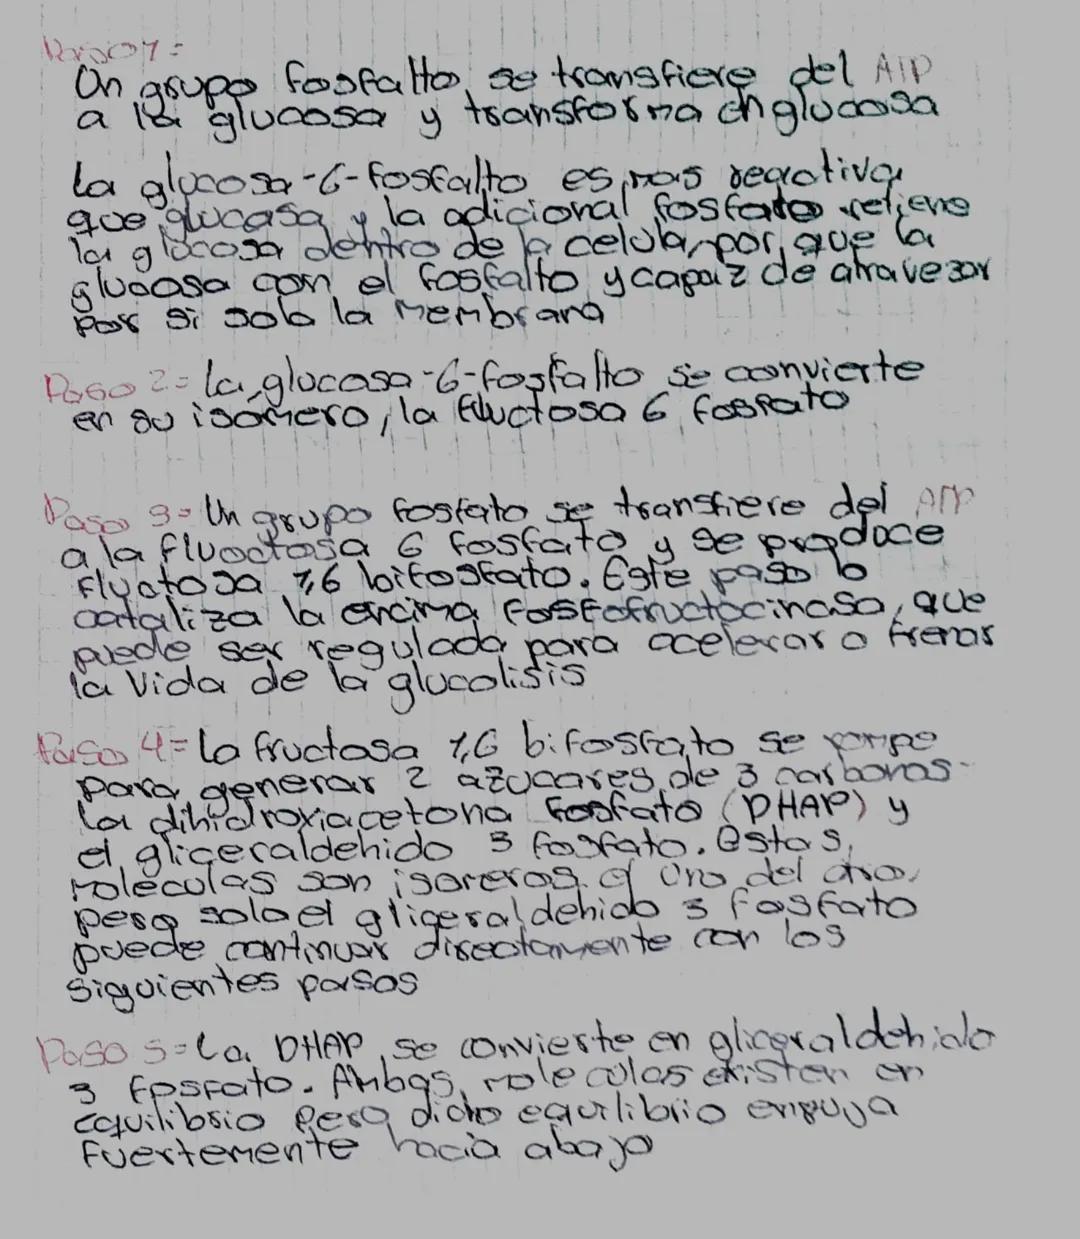 Paso 1=
Un grupo fosfalto se transfiere del ATP
a la glucosa y transforma en glucosa
La glucosa-6-fosfalto es mas reactiva
que glucasa y la adicional fosfato retiene
la glucosa dentro de la celula, por que la
glucosa com el fosfalto y capaz de atravezar
por si sola la membrana
Paso 2= La glucosa-6-fosfalto se convierte
en su isomero, la fluctosa 6 fosfato
Paso 3= Un grupo fosfato se transfiere del ATP
a la fluoctosa 6 fosfato y se produce
fluctosa 1,6 bifosfato. Este paso lo
cataliza la encima fosfofructocinasa, que
puede ser regulada para acelerar o frenar
la vida de la glucolisis
Paso 4= La fructosa 1,6 bifosfato se rompe
para generar 2 azucares de 3 carbonos-
La dihidroxiacetona fosfato (DHAP) y
el gliceraldehido 3 fosfato. Estas
moleculas son isomeros uno del otro,
pero solo el gligeraldehido 3 fosfato
puede continuar directamente con los
siguientes pasos
Paso 5= La DHAP se convierte en gliceraldehido
3 fosfato. Ambas moleculas existen en
equilibrio pero dicho equilibrio empuja
fuertemente hacia abajo